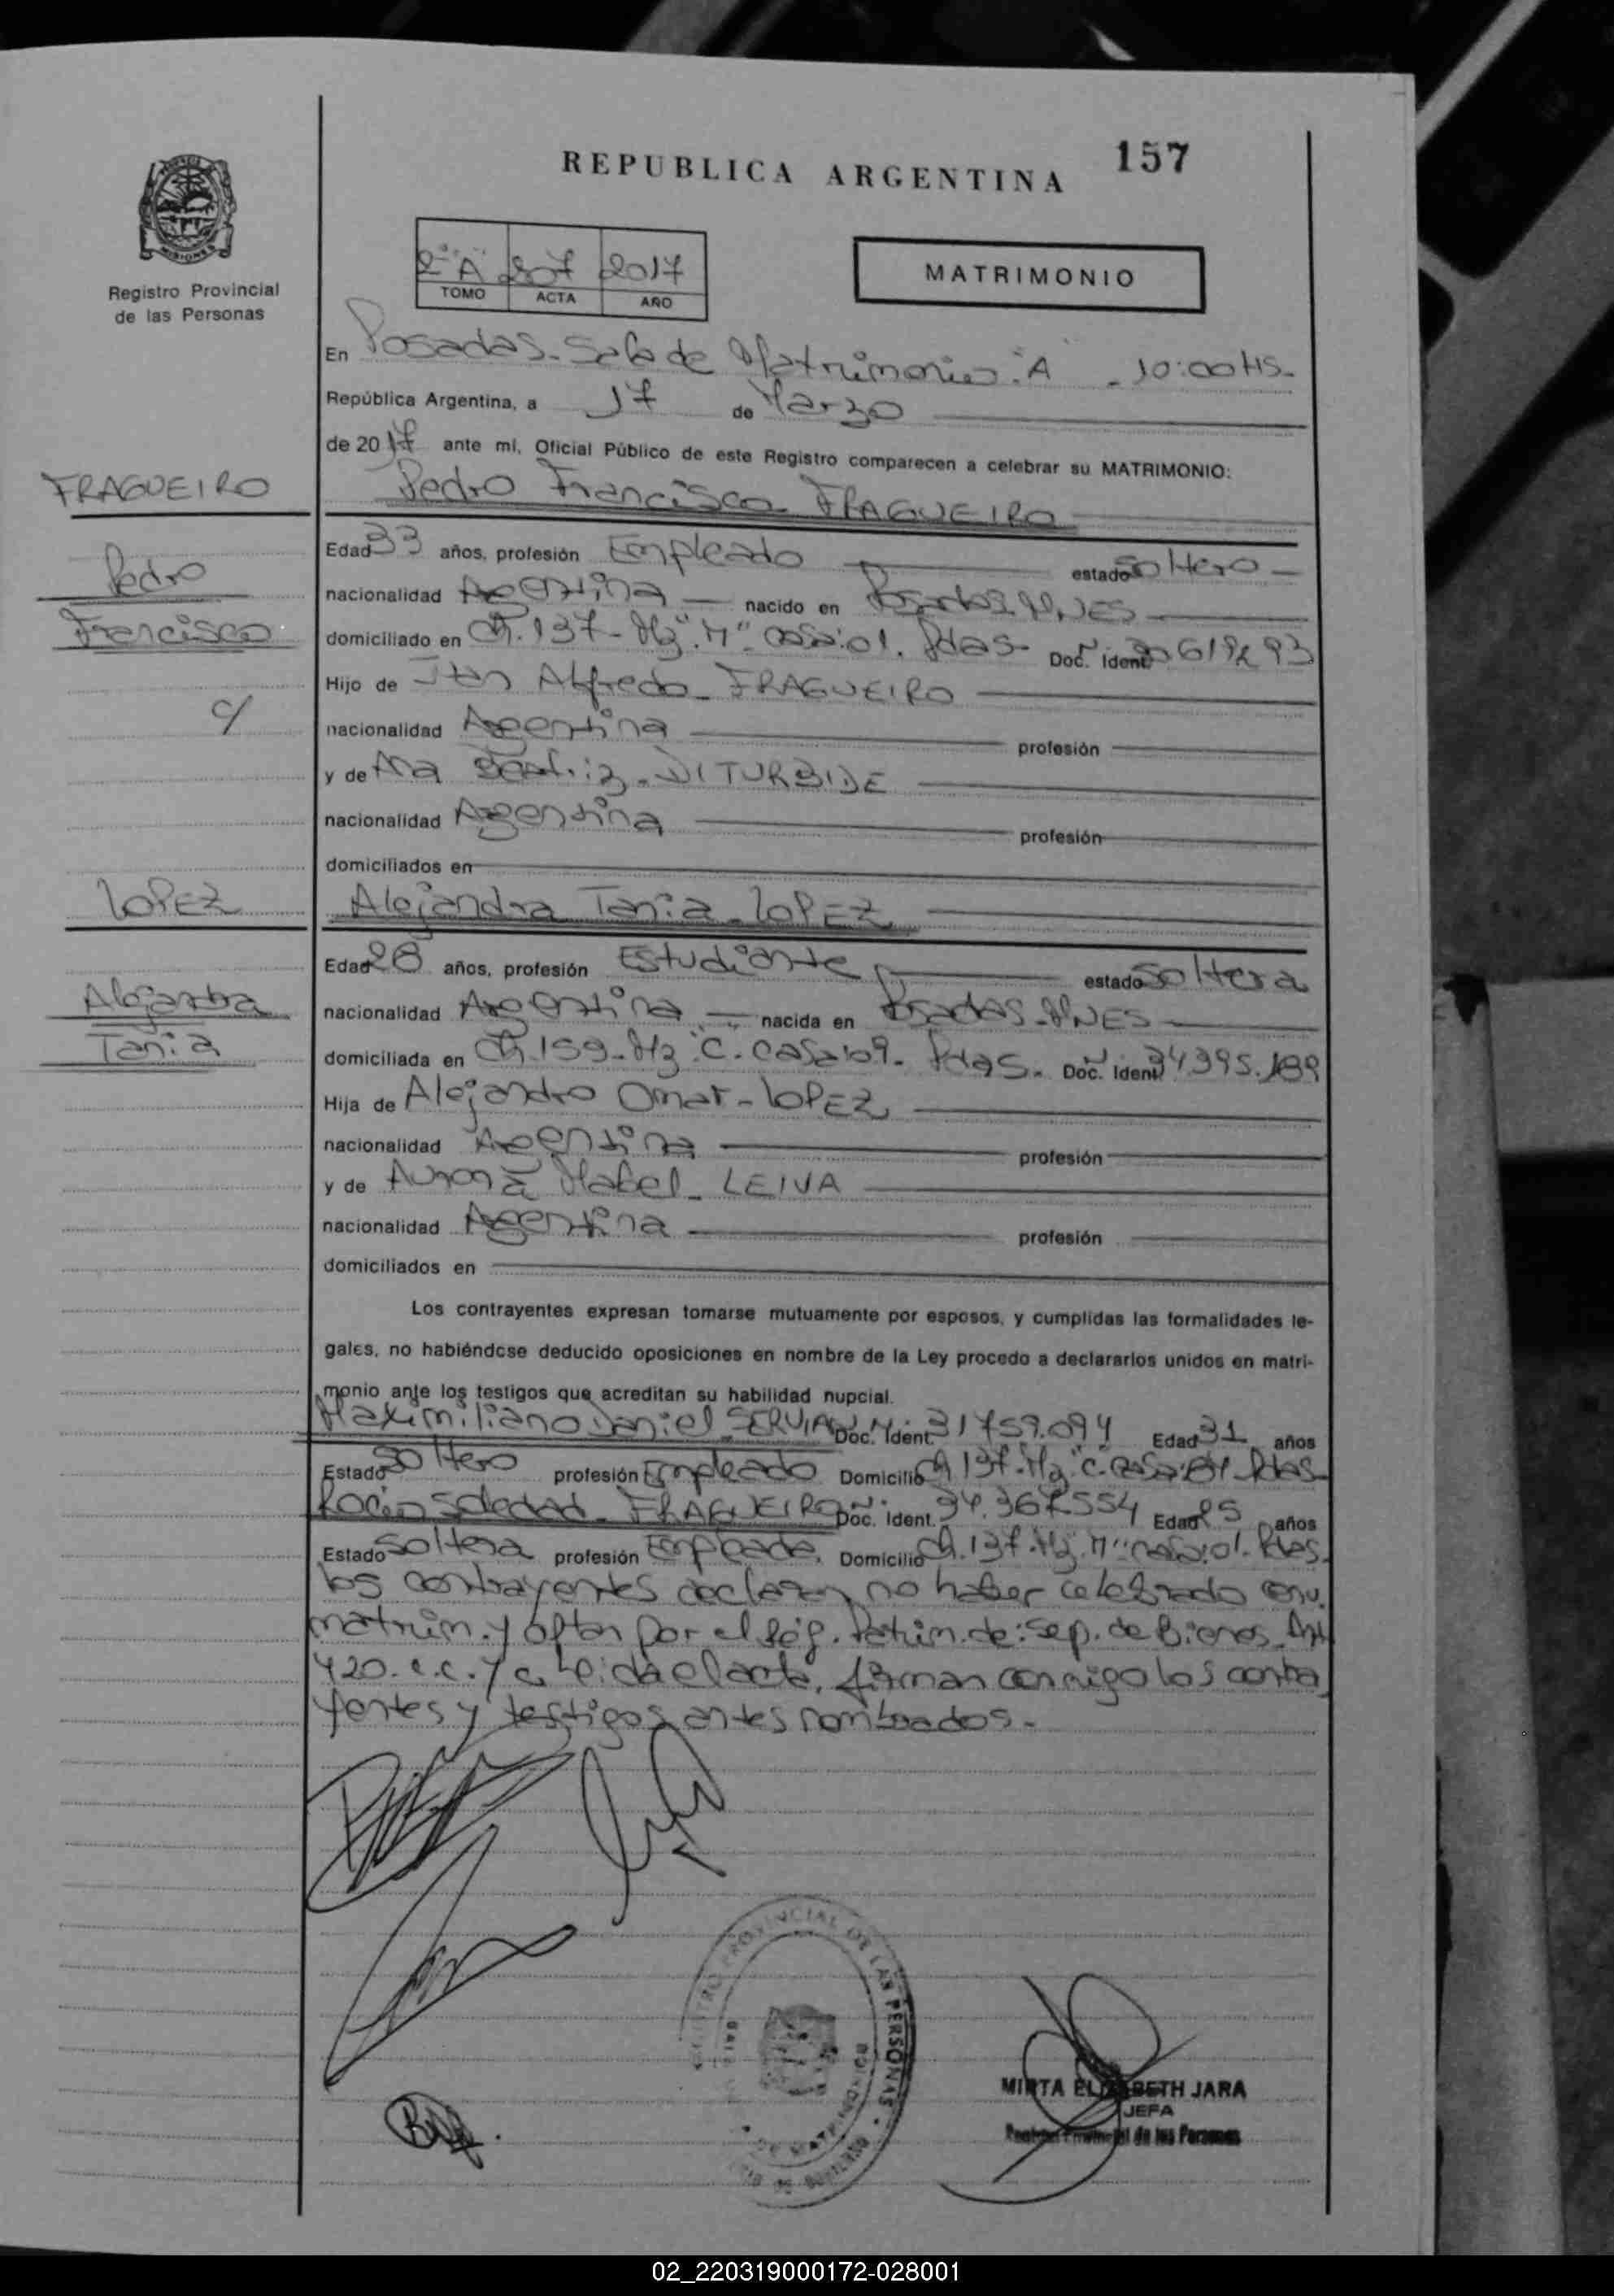 REPUBLICA ARGENTINA 157
MISIONES
Registro Provincial
de las Personas
2º "A" 207 2017
TOMO ACTA AÑO
MATRIMONIO
En Posadas - Sala de Matrimonios "A" - 10:00 HS -
República Argentina, a 17 de Marzo
de 2017 ante mí, Oficial Público de este Registro comparecen a celebrar su MATRIMONIO:
FRAGUEIRO
Pedro Francisco FRAGUEIRO
Pedro
Francisco
c/
Edad 33 años, profesión Empleado estado Soltero
nacionalidad Argentina nacido en Posadas MNES
domiciliado en Ch. 137 - Mz "M" casa: 01. Pdas - Doc. Ident.
Hijo de Alfredo - FRAGUEIRO
nacionalidad Argentina profesión
y de Ana Beatriz - DITURBIDE
nacionalidad Argentina profesión
domiciliados en
LOPEZ
Alejandra Tania - LOPEZ
Alejandra
Tania
Edad 28 años, profesión Estudiante estado Soltera
nacionalidad Argentina nacida en Posadas - MNES
domiciliada en Ch. 159 - Mz "C" - casa: 09 - Pdas - Doc. Ident. 34395.189
Hija de Alejandro Omar - LOPEZ
nacionalidad Argentina profesión
y de Aurora Mabel - LEIVA
nacionalidad Argentina profesión
domiciliados en
Los contrayentes expresan tomarse mutuamente por esposos, y cumplidas las formalidades le-
gales, no habiéndose deducido oposiciones en nombre de la Ley procedo a declararlos unidos en matri-
monio ante los testigos que acreditan su habilidad nupcial.
Maximiliano Daniel SERVIAN Doc. Ident. 31759.094 Edad 31 años
Estado Soltero profesión Empleado Domicilio Ch 137 - Mz "C" casa: Pdas -
Rocio Soledad - FRAGUEIRO Doc. Ident. Edad 25 años
Estado Soltera profesión Empleada Domicilio Ch. 137 - Mz. "M" casa: 01. Pdas.
los contrayentes declaran no haber celebrado conv.
matrim. y optan por el Rég. Patrim. de: Sep. de Bienes. Art
420. C.C. y C. Leida el acta, firman conmigo los contra
yentes y testigos antes nombrados -
REGISTRO PROVINCIAL DE LAS PERSONAS
MIRTA ELIZABETH JARA
JEFA
Registro Provincial de las Personas
02_220319000172-028001